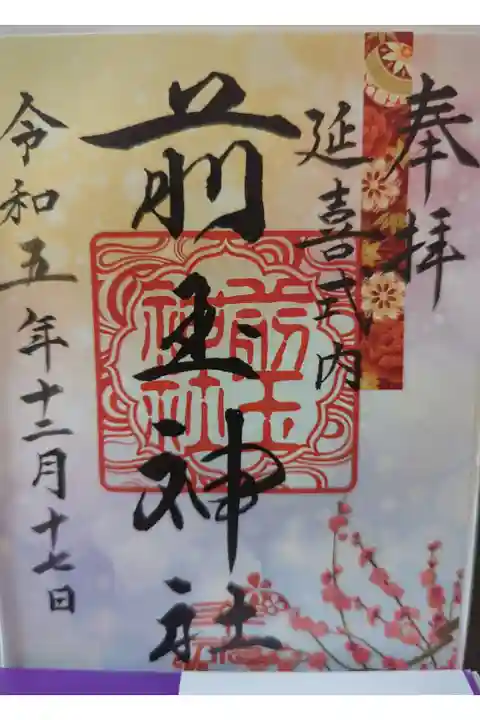 奉拝
延喜式内
前玉神社
前玉神社
令和五年十二月十七日